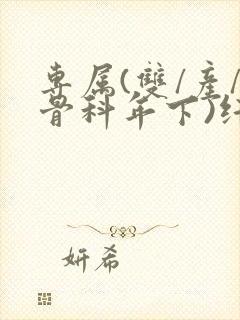 專属(雙/產/
骨科年下)纟
妍希